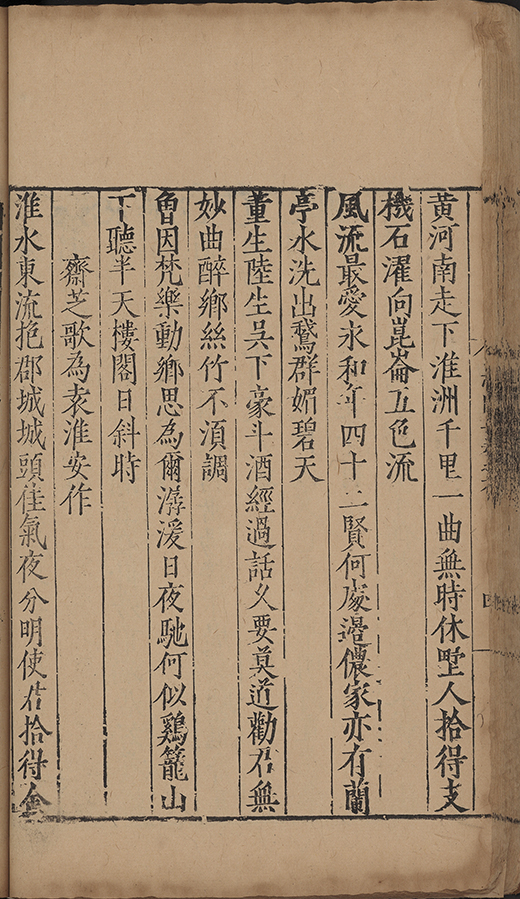 黄河南走下淮洲千里一曲無時休野人拾得支
機石濯向崑崙五色流
風流最愛永和年四十二賢何處邉儂家亦有蘭
亭水洗出鵞群媚碧天
董生陸生吴下豪斗酒經過話久要莫道勸君無
妙曲醉鄉絲竹不湏調
曾因梵樂動鄉思為爾潺湲日夜馳何似鷄籠山
下聽半天樓閣日斜時
齋芝歌為袁淮安作
淮水東流抱郡城城頭佳氣夜分明使君拾得金